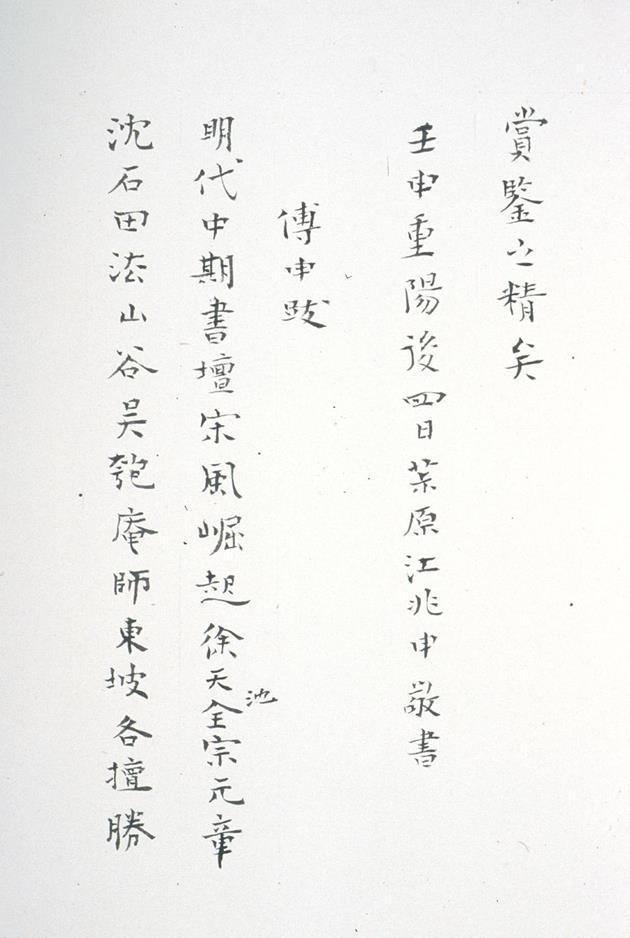 賞鑒之精矣
壬申重陽後四日茮原江兆申敬書
傅申跋
明代中期書壇宋風崛起徐天全宗元章
池
沈石田法山谷吳匏庵師東坡各擅勝